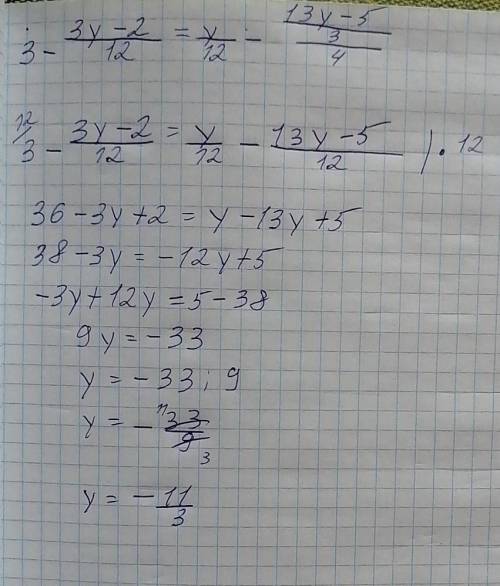 3 - (3y-2)/12 = y/12 - (13y-5)/(3/4)
¹²/3 - (3y-2)/12 = y/12 - (13y-5)/12 / · 12
36-3y+2 = y-13y+5
38-3y = -12y+5
-3y+12y = 5-38
9y = -33
y = -33 : 9
y = - ¹¹33/9₃
y = - 11/3